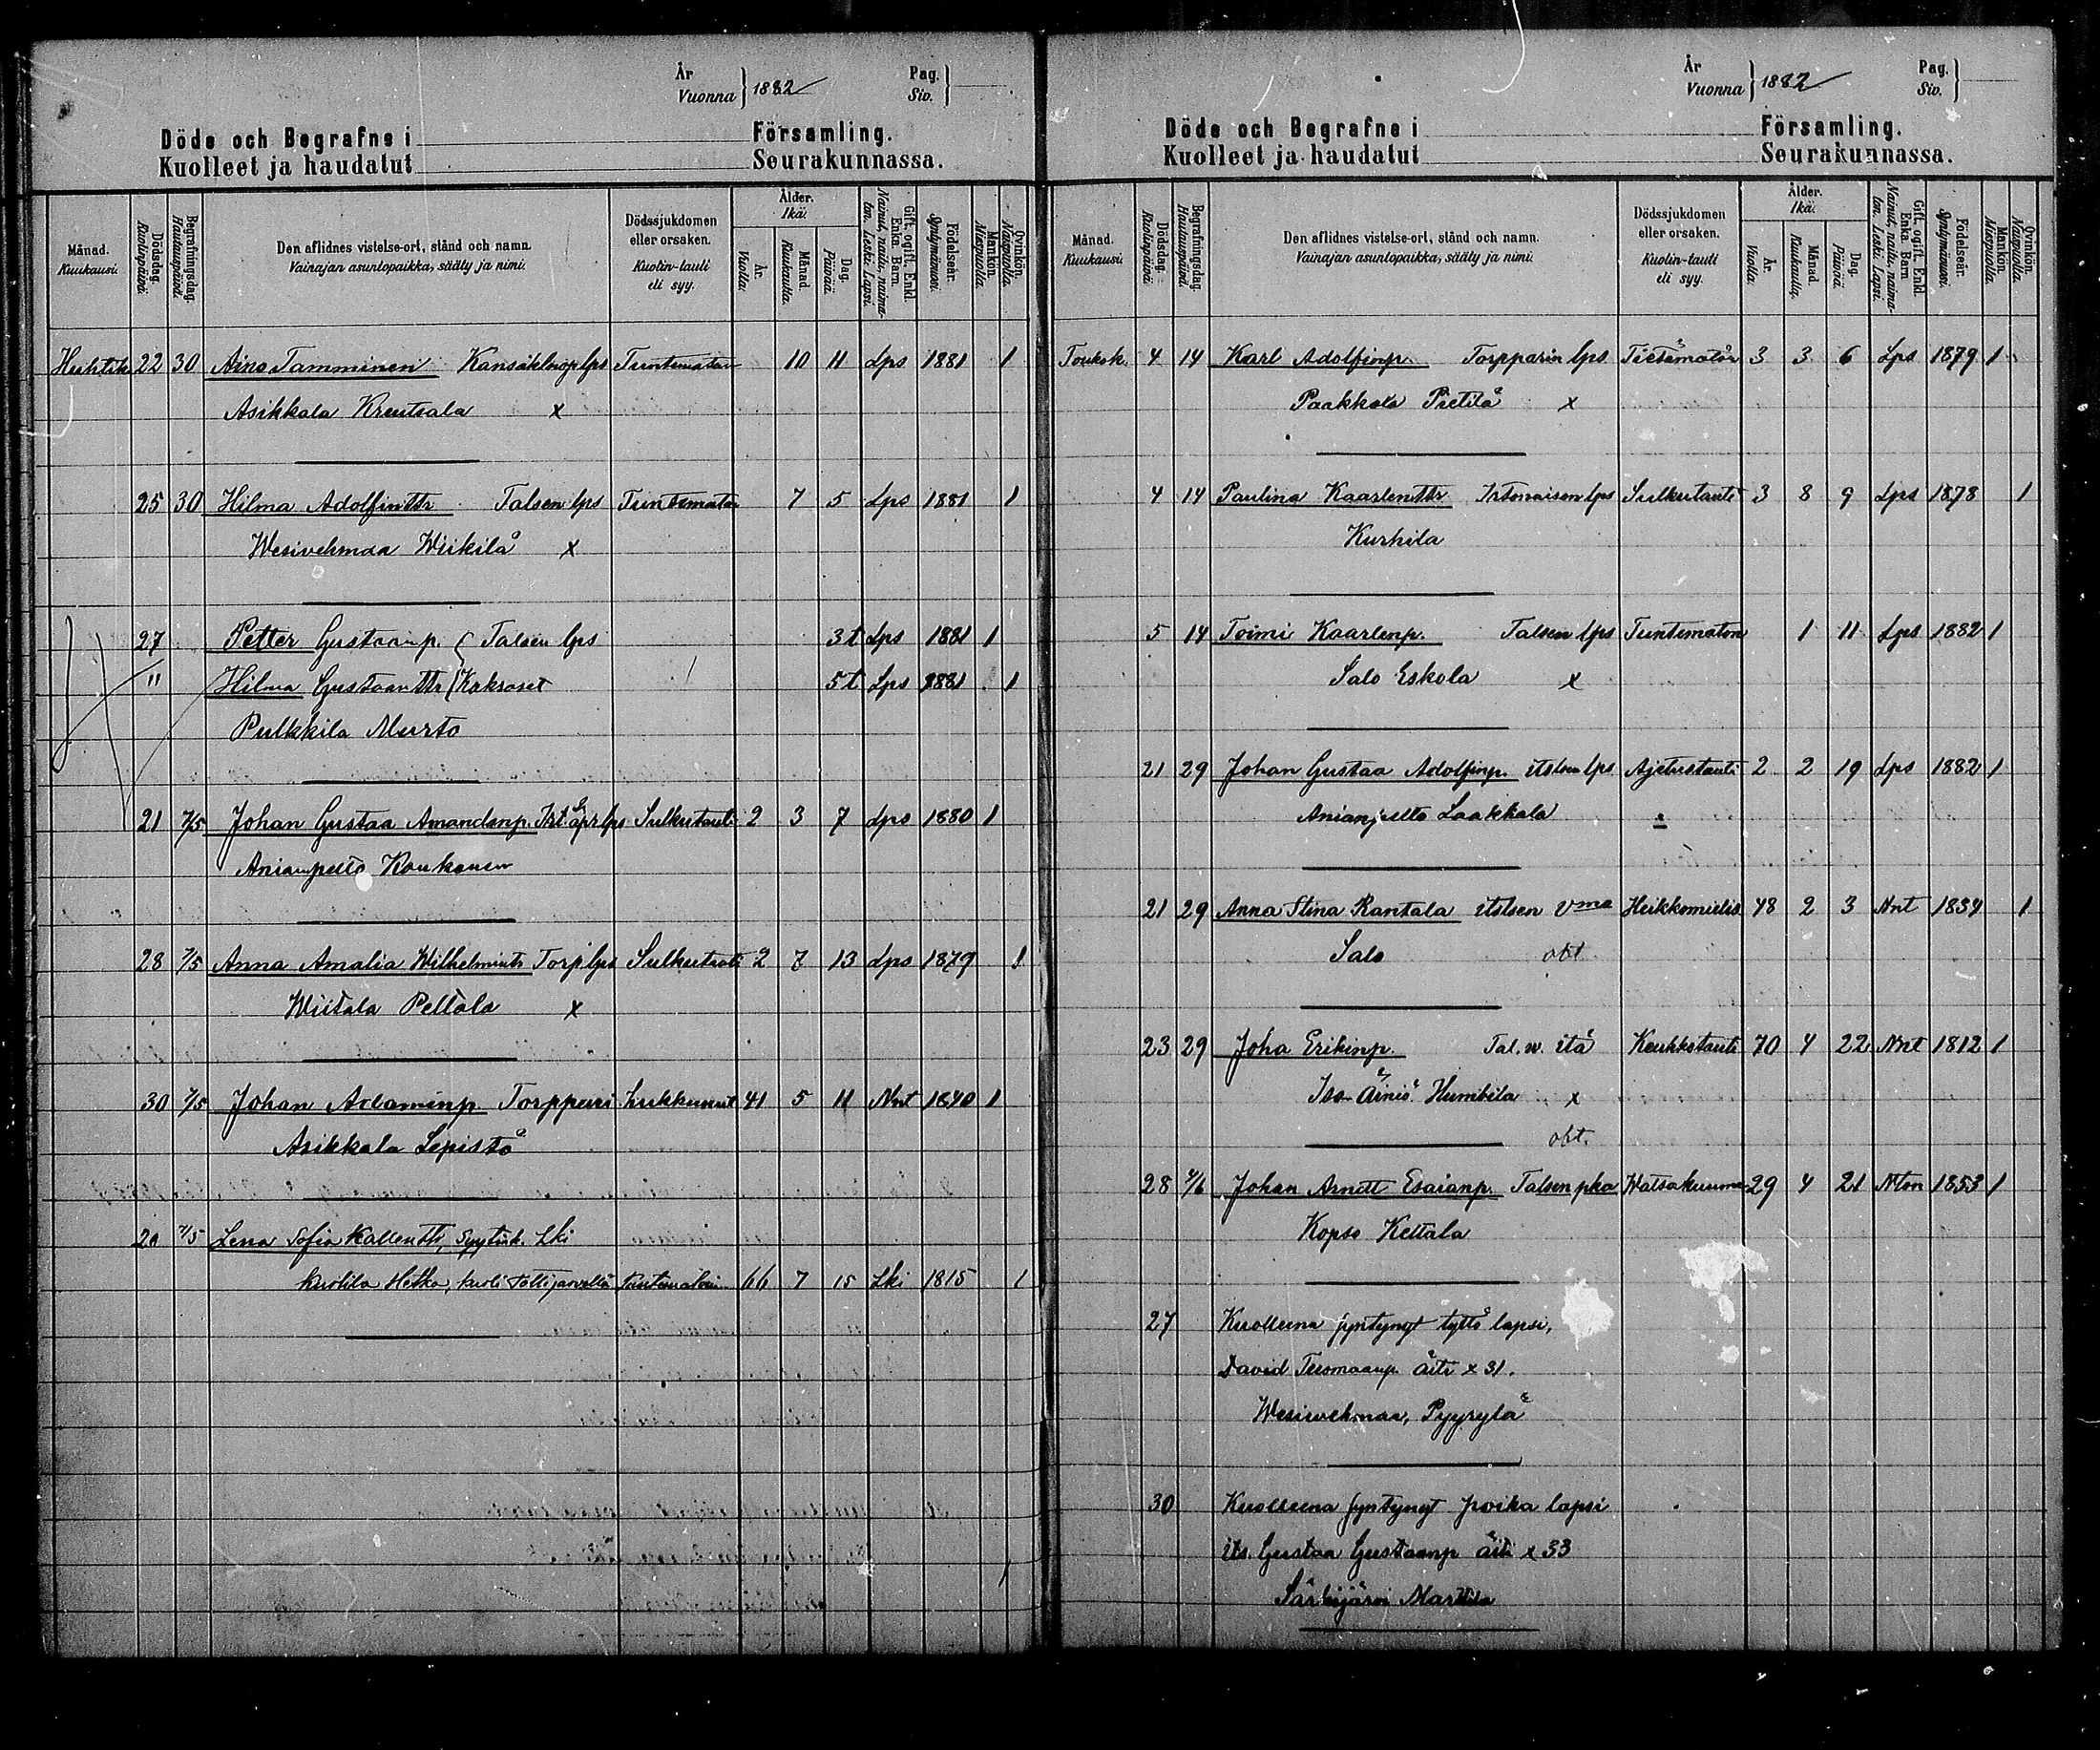 År
Vuonna } 1882
Pag.
Siv. }
Döde och Begrafne i Församling.
Kuolleet ja haudatut Seurakunnassa.
Månad. Kuukausi.
Dödsdag. Kuolinpäivä
Begrafningsdag. Hautauspäivä
Den aflidnes vistelse-ort, stånd och namn. Vainajan asuntopaikka, sääty ja nimi.
Dödssjukdomen eller orsaken. Kuolin-tauti eli syy.
Ålder. Ikä.
År. Vuotta.
Månad. Kuukautta.
Dag. Päivää.
Gift, ogift, Enkl. Enka. Barn. Nainut, naitu, naimaton. Leski. Lapsi.
Födelseår. Syntymävuosi.
Mankön. Miespuolta.
Qvinkön. Naispuolta.
Huhtik 22 30 Aino Tamminen Kansaklnop lps Tuntematon 10 11 Lps 1881 1
Asikkala Kreutsala x
25 30 Hilma Adolfintr Talsen lps Tuntematon 7 5 Lps 1881 1
Wesivehmaa Wiikilä x
27 Petter Gustaanp. Talsen lps 3t Lps 1881 1
" Hilma Gustaanttr Kaksoset 5t Lps 1881 1
Pulkkila Mursto
21 7/5 Johan Gustaa Amandanp. lps Sulkutauti 2 3 7 Lps 1880 1
Anianpelto Koukonen
28 7/5 Anna Amalia Wilhelmintr Torp lps Sulkutauti 2 7 13 Lps 1879 1
Wiitala Peltola x
30 7/5 Johan Adaminp. Torppari 41 5 11 Nnt 1840 1
Asikkala Lepistö
20 7/5 Lena Sofia Kallentr, Lki
Kurhila Hetka, kuoli tuntematoin 66 7 15 Lki 1815 1
År
Vuonna } 1882
Pag.
Siv. }
Döde och Begrafne i Församling.
Kuolleet ja haudatut Seurakunnassa.
Månad. Kuukausi.
Dödsdag. Kuolinpäivä
Begrafningsdag. Hautauspäivä
Den aflidnes vistelse-ort, stånd och namn. Vainajan asuntopaikka, sääty ja nimi.
Dödssjukdomen eller orsaken. Kuolin-tauti eli syy.
Ålder. Ikä.
År. Vuotta.
Månad. Kuukautta.
Dag. Päivää.
Gift, ogift, Enkl. Enka. Barn. Nainut, naitu, naimaton. Leski. Lapsi.
Födelseår. Syntymävuosi.
Mankön. Miespuolta.
Qvinkön. Naispuolta.
Toukok. 4 14 Karl Adolfinp. Torpparin lps Tietämätön 3 3 6 Lps 1879 1
Paakkola Pietilä x
4 14 Paulina Kaarlenttr Irtonaisen lps Sulkutauti 3 8 9 Lps 1878 1
Kurhila
5 14 Toimi Kaarlenp. Talsen lps Tuntematon 1 11 Lps 1882 1
Salo Eskola x
21 29 Johan Gustaa Adolfinp. itslsen lps Ajetustauti 2 2 19 Lps 1882 1
Anianpelto Laakkala
21 29 Anna Stina Rantala itslsen vma Heikkomielis 48 2 3 Nnt 1834 1
Salo obt
23 29 Joha Erikinp. Tal. w. isä Keuhkotauti 70 4 22 Nnt 1812 1
Iso-Äiniö Humbila x
obt.
28 4/6 Johan Arvitt Esaianp. Talsen pka Watsakuume 29 4 21 Nton 1853 1
Kopso Kettala
27 Kuolleena syntynyt tyttö lapsi,
David Tuomaanp. äiti x 31.
Wesivehmaa, Pyyrylä
30 Kuolleena syntynyt poika lapsi
its. Gustaa Gustaanp äiti x 33
Särkijärvi Marttila